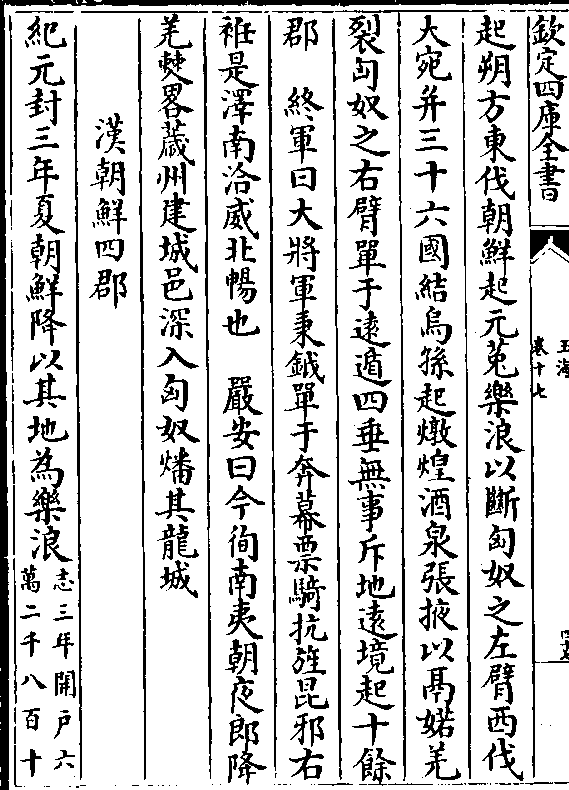 欽定四庫全書
玉海
卷十七
起朔方東伐朝鮮起元菟樂浪以斷匈奴之左臂西伐
大宛并三十六國結烏孫起燉煌酒泉張掖以鬲婼羌
裂匈奴之右臂單于遠遁四垂無事斥地遠境起十餘
郡　終軍曰大將軍秉鉞單于奔幕票騎抗旌昆邪右
衽是澤南洽威北暢也　嚴安曰今徇南夷朝夜郎降
羌僰畧薉州建城邑深入匈奴燔其龍城
漢朝鮮四郡
紀元封三年夏朝鮮降以其地為樂浪
志三年開户六
萬二千八百十